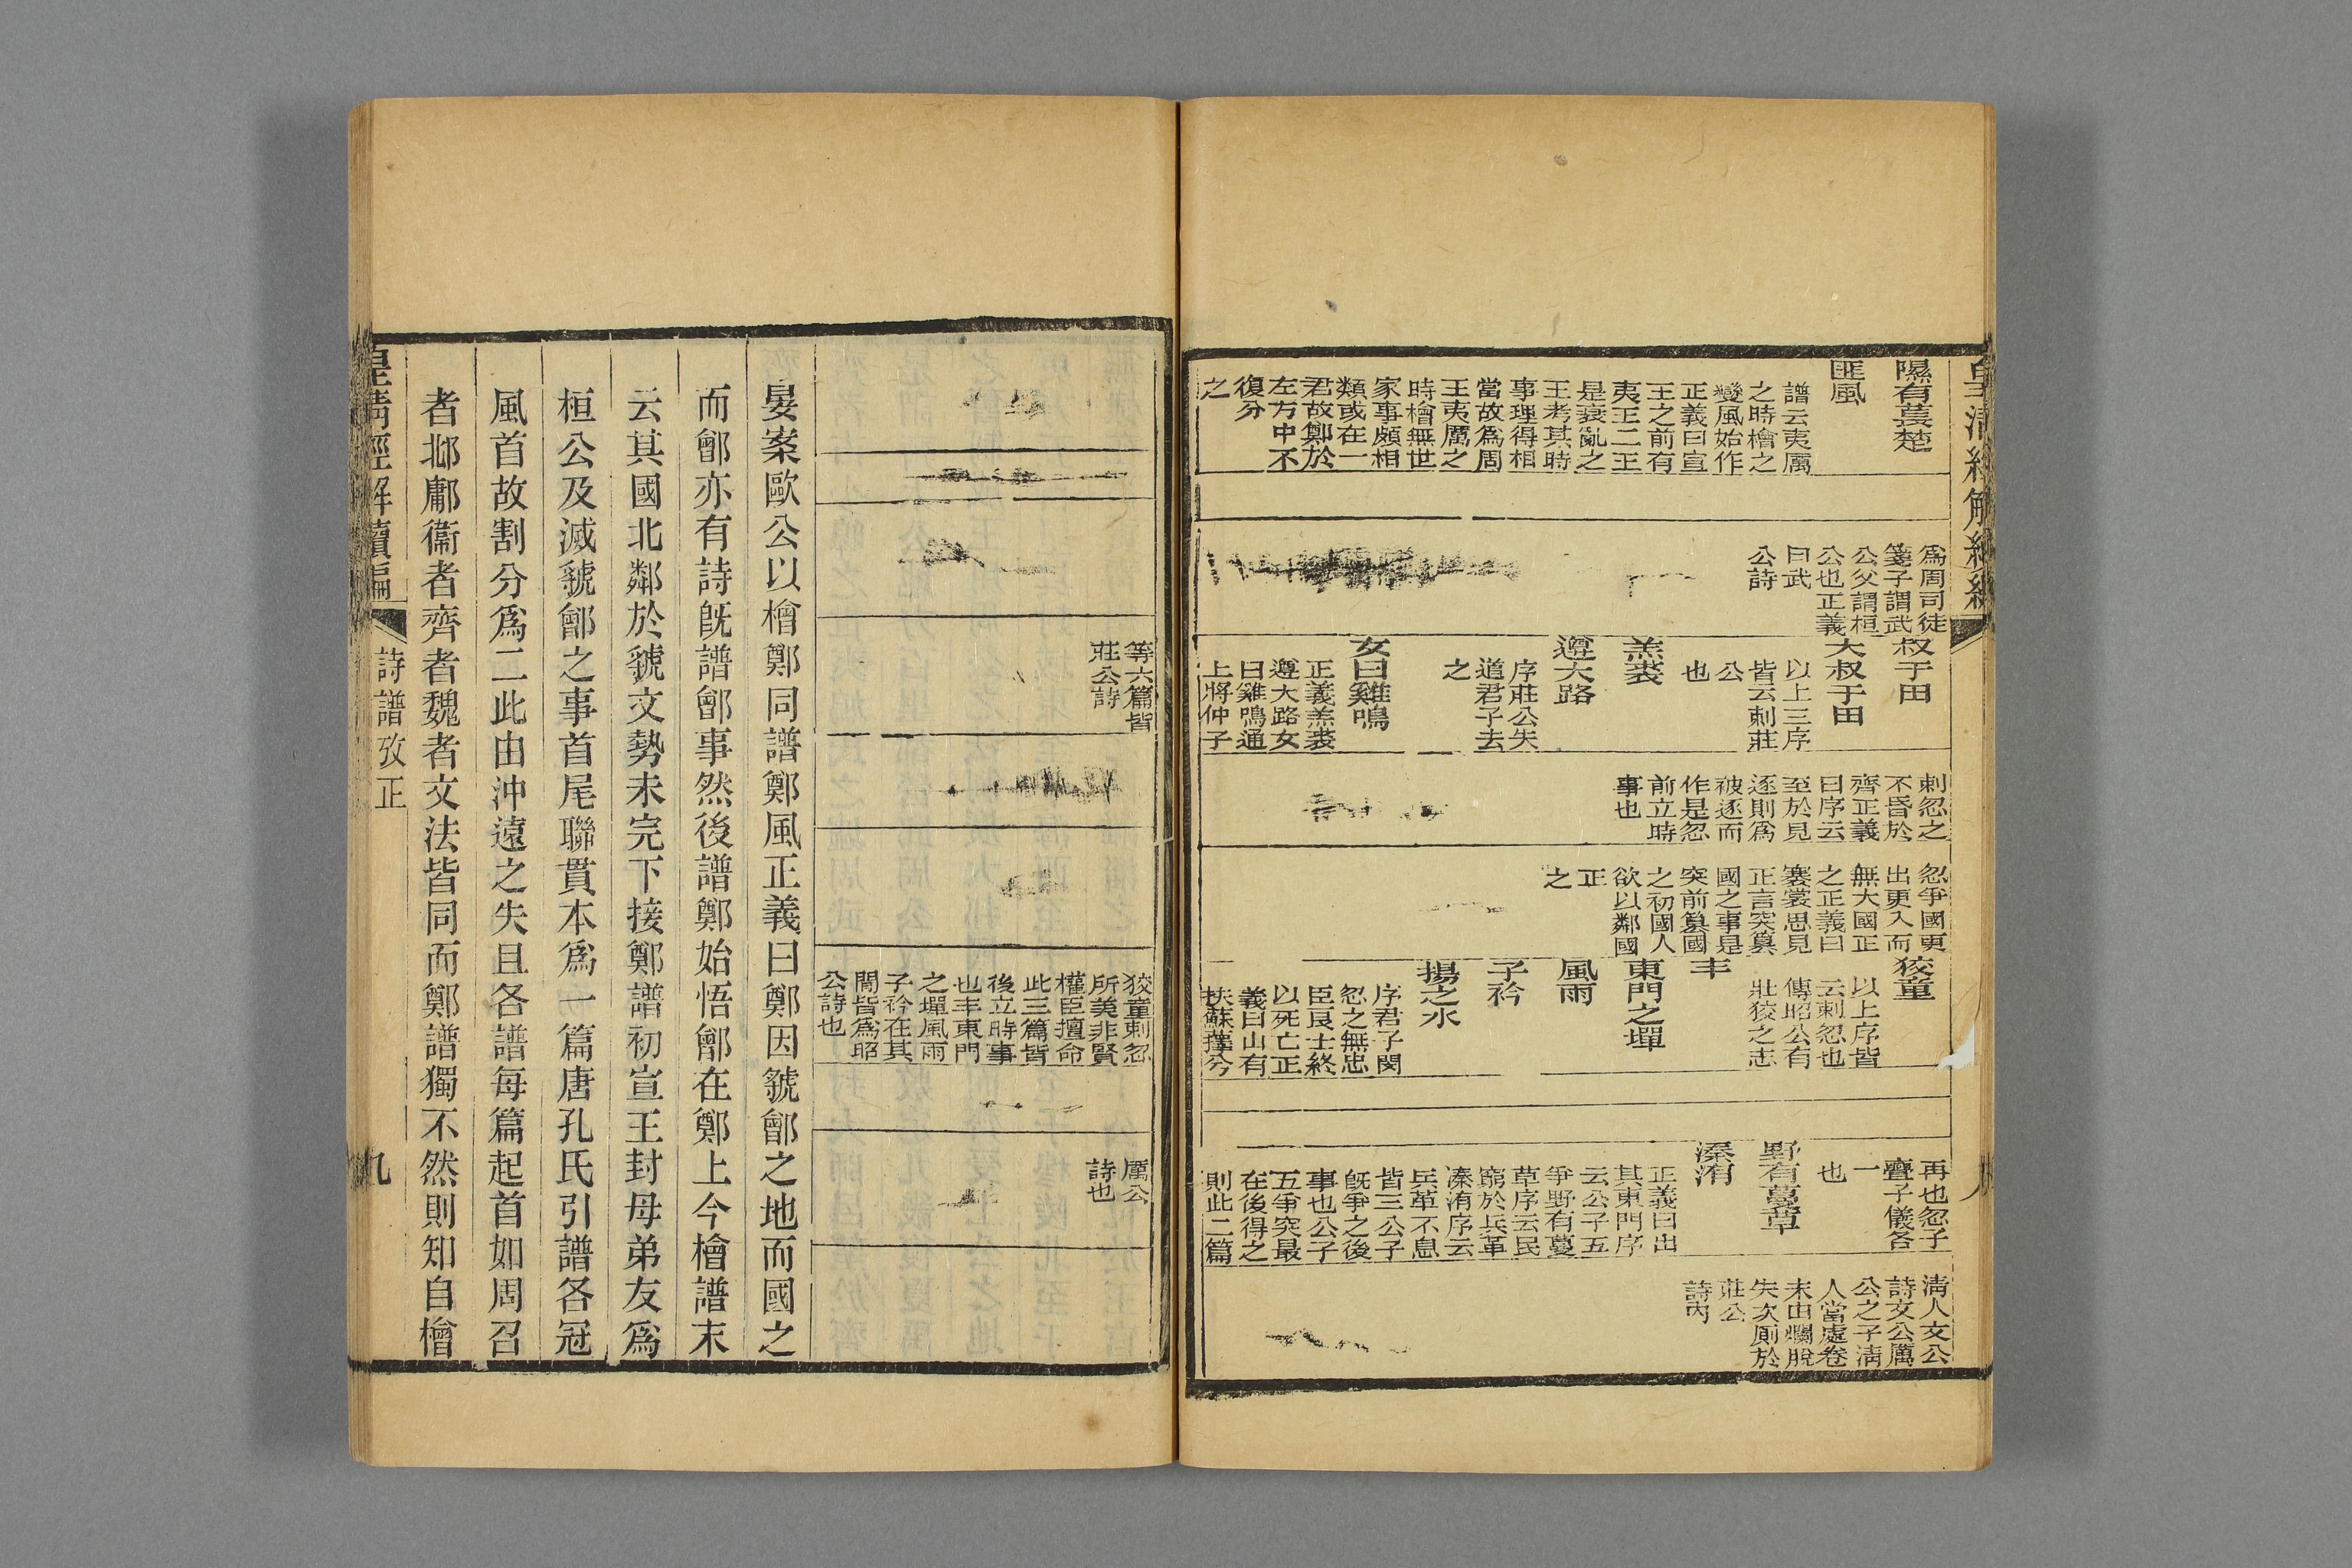 隰有萇楚
匪風
譜云夷厲
之時檜之
變風始作
正義曰宣
王之前有
夷王二王
是衰亂之
王考其時
事理得相
當故為周
王夷厲之
時檜無世
家事頗相
類或在一
君故鄭於
左方中不
復分
之
為周司徒
箋子謂武
公父謂桓
公也正義
曰武
公詩
叔于田
大叔于田
以上三序
皆云刺莊
公
也
羔裘
遵大路
序莊公失
道君子去
之
女曰雞鳴
正義羔裘
遵大路女
曰雞鳴通
上將仲子
刺忽之
不昏於
齊正義
曰序云
至於見
逐則為
被逐而
作是忽
前立時
事也
忽爭國更
出更入而
無大國正
之正義曰
褰裳思見
正言突篡
國之事是
突前篡國
之初國人
欲以鄰國
正
之
狡童
以上序皆
云刺忽也
傳昭公有
壯狡之志
丰
東門之墠
風雨
子衿
揚之水
序君子閔
忽之無忠
臣良士終
以死亡正
義曰山有
扶蘇蘀兮
再也忽子
亹子儀各
一
也
野有蔓草
溱洧
正義曰出
其東門序
云公子五
爭野有蔓
草序云民
窮於兵革
溱洧序云
兵革不息
皆三公子
既爭之後
事也公子
五爭突最
在後得之
則此二篇
清人文公
詩文公厲
公之子清
人當處卷
末由爛脫
失次廁於
莊公
詩內
等六篇皆
莊公詩
狡童刺忽
所美非賢
權臣擅命
此三篇皆
後立時事
也丰東門
之墠風雨
子衿在其
間皆為昭
公詩也
厲公
詩也
晏案歐公以檜鄭同譜鄭風正義曰鄭因虢鄶之地而國之
而鄶亦有詩旣譜鄶事然後譜鄭始悟鄶在鄭上今檜譜末
云其國北鄰於虢文勢未完下接鄭譜初宣王封母弟友為
桓公及滅虢鄶之事首尾聯貫本為一篇唐孔氏引譜各冠
風首故割分為二此由沖遠之失且各譜每篇起首如周召
者邶鄘衞者齊者魏者文法皆同而鄭譜獨不然則知自檜
皇清經解續編
詩譜攷正
九